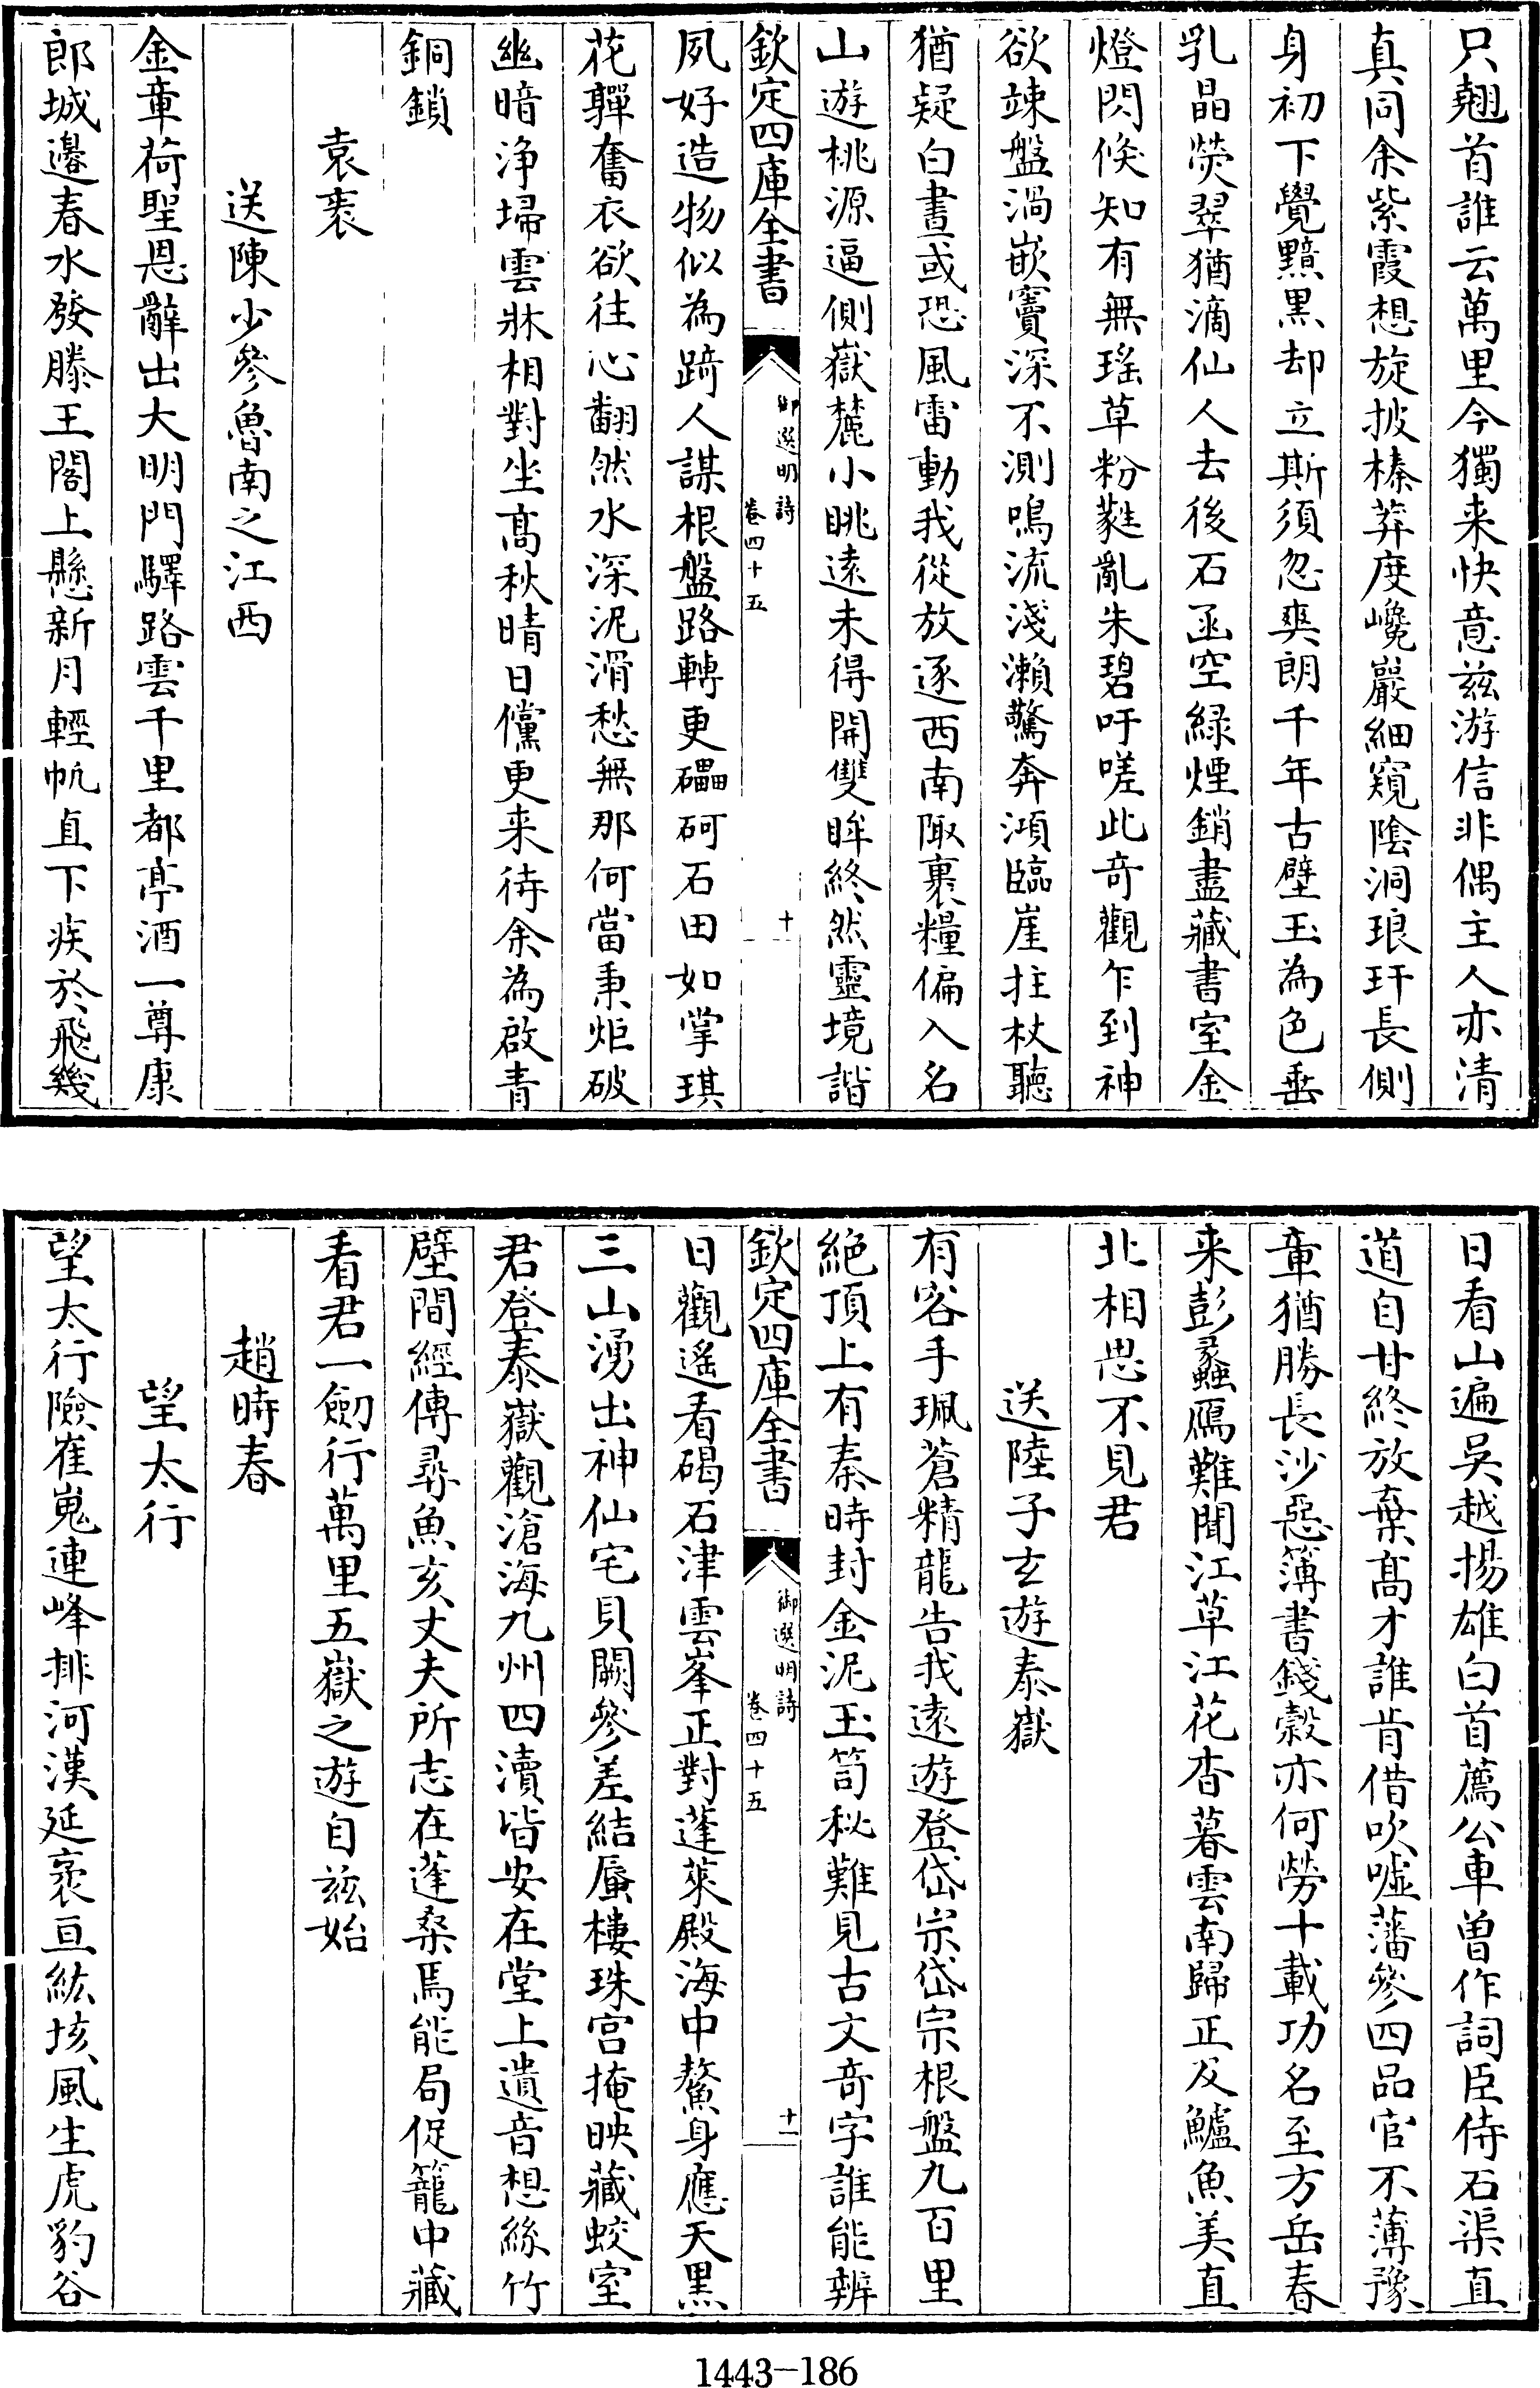 只翹首誰云萬里今獨来快意兹游信非偶主人亦清
真同余紫霞想旋披榛莽度巉巖細窺陰洞琅玕長側
身初下覺黯黒却立斯須忽爽朗千年古壁玉為色垂
乳晶熒翠猶滴仙人去後石函空緑煙銷盡藏書室金
燈閃倐知有無瑶草粉蕤亂朱碧吁嗟此奇觀乍到神
欲竦盤渦嵌竇深不測鳴流淺瀨驚奔澒臨崖拄杖聽
猶疑白晝或恐風雷動我從放逐西南陬裹糧偏入名
山遊桃源逼側嶽麓小眺遠未得開雙眸終然靈境諧
欽定四庫全書
御選明詩
卷四十五
十
夙好造物似為踦人謀根盤路轉更礧砢石田如掌琪
花軃奮衣欲往心翻然水深泥滑愁無那何當秉炬破
幽暗浄埽雲牀相對坐髙秋晴日儻更来待余為啟青
銅鎖
袁袠
送陳少參魯南之江西
金章荷聖恩辭出大明門驛路雲千里都亭酒一尊康
郎城邉春水發滕王閣上懸新月輕帆直下疾於飛幾
日看山遍吳越揚雄白首薦公車曽作詞臣侍石渠直
道自甘終放棄髙才誰肯借吹噓藩參四品官不薄豫
章猶勝長沙惡簿書錢穀亦何勞十載功名至方岳春
来彭蠡鴈難聞江草江花杳暮雲南歸正及鱸魚美直
北相思不見君
送陸子𤣥遊泰嶽
有客手珮蒼精龍告我遠遊登岱宗岱宗根盤九百里
絶頂上有秦時封金泥玉笥秘難見古文奇字誰能辨
欽定四庫全書
御選明詩
卷四十五
十一
日觀遙看碣石津雲峯正對蓬萊殿海中鰲身應天黒
三山湧出神仙宅貝闕參差結蜃樓珠宫掩映藏蛟室
君登泰嶽觀滄海九州四瀆皆安在堂上遺音想絲竹
壁間經傳尋魚亥丈夫所志在蓬桑焉能局促籠中藏
看君一劒行萬里五嶽之遊自兹始
趙時春
望太行
望太行險崔嵬連峰排河漢延袤亘紘垓風生虎豹谷
1443-186